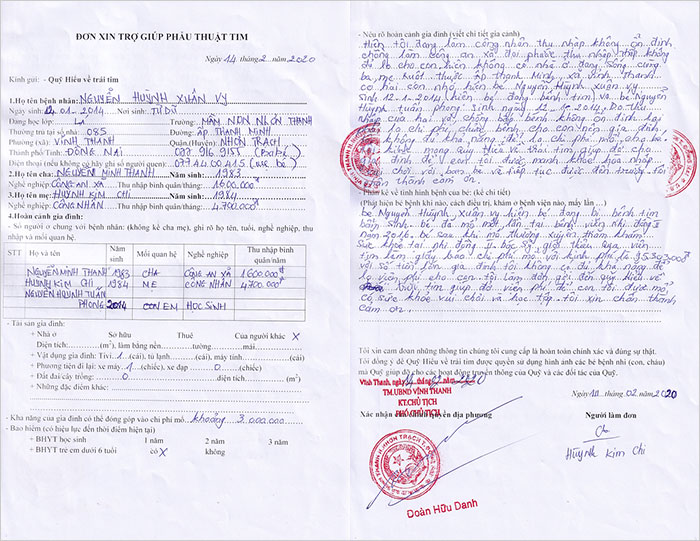 ĐƠN XIN TRỢ GIÚP PHẪU THUẬT TIM
Ngày 14 tháng 2 năm 2020
Kính gửi: - Quỹ Hiểu về trái tim
1.Họ tên bệnh nhân: NGUYỄN HUỲNH XUÂN VY
Ngày sinh 12.01.2014 Nơi sinh: TỪ DŨ
Đang học lớp: LÁ Trường: MẦM NON NHƠN THẠNH
Thường trú tại số nhà: 085 Đường: ẤP THANH MINH
Phường (xã): VĨNH THANH Quận,(Huyện) NHƠN TRẠCH
Thành phố/Tỉnh: ĐỒNG NAI
Điện thoại (nếu không có hãy ghi số người quen):
2.Họ tên cha: NGUYỄN MINH THANH Năm sinh: 1983
Nghề nghiệp CÔNG AN XÃ Thu nhập bình quân/tháng: 1600.000đ
3.Họ tên mẹ: HUỲNH KIM CHI Năm sinh: 1984
Nghề nghiệp: CÔNG NHÂN Thu nhập bình quân/tháng: 4.700.000đ
4.Hoàn cảnh gia đình:
- Số người ở chung với bệnh nhân: (không kể cha mẹ), ghi rõ họ tên, tuổi, nghề nghiệp, thu
nhập và mối quan hệ.
STT Họ và tên Năm sinh Mối quan hệ Nghề nghiệp Thu nhập bình quân/tháng
NGUYỄN MINH THANH 1983 CHA CÔNG AN XÃ 1600.000đ
HUỲNH KIM CHI 1984 MẸ CÔNG NHÂN 4700.000đ
NGUYỄN HUỲNH TUẤN
PHONG 2014 CON EM HỌC SINH
- Tài sản gia đình:
+ Nhà ở Sở hữu Thuê Của người khác X
Diện tích: (m²), làm bằng nền tường mái
+ Vật dụng gia đình: Tivi 1 (cái), tủ lạnh (cái), máy tính (cái)
+ Phương tiện đi lại: xe máy 1 (chiếc), xe đạp 0 (chiếc)
+ Đất đai cây trồng: 0 diện tích (m²)
+ Những đặc điểm khác:
- Khả năng của gia đình có thể đóng góp vào chi phí mổ: khoảng 3.000.000
- Bảo hiểm (có hiệu lực đến thời điểm hiện tại)
+ BHYT học sinh 1 năm 2 năm 3 năm
+ BHYT trẻ em dưới 6 tuổi có X không
- Nêu rõ hoàn cảnh gia đình (viết chi tiết gia cảnh)
Hiện tôi đang làm công nhân thu nhập không ổn định
chồng làm công an xã đội phước thu nhập thấp không
đủ lo cho con. hiện không có nhà ở đang sống cùng
ba, mẹ ruột thuộc ấp thanh Minh, xã Vĩnh Thanh
có hai con nhỏ. hiện bé Nguyễn Huỳnh Xuân Vy
sinh 12.1.2014 (hiện bé đang bệnh tim) và bé Nguyễn
Huỳnh Tuấn phong sinh ngày 12.1.2014. Do thu
nhập của hai vợ, chồng bấp bênh không ổn định lại
phải lo chi phí chữa bệnh cho con nên gia đình
không đủ khả năng để lo chi phí mổ cho bé.
kính mong quỹ hiểu về trái tim giúp đỡ cho
gia đình để con tôi được mạnh khỏe hòa nhập
vui chơi với bạn bè và tiếp tục được đến trường tôi
chân thành cảm ơn.
- Thăm kể về tình hình bệnh của bé: (kể chi tiết)
(Phát hiện bé bệnh khi nào, cách điều trị, khám ở bệnh viện nào, mấy lần ...)
bé Nguyễn Huỳnh Xuân Vy hiện bé đang bị bệnh tim
bẩm sinh. bé đã mổ một lần tại bệnh viện nhi đồng 1
năm 2016. bé sau khi mổ thường xuyên thăm khám.
tim làm giấy báo chi phí mổ với kinh phí là
với số tiền lớn gia đình tôi không có đủ khả năng để
lo viện phí cho con tôi làm đơn gửi đến quỹ hiểu về
trái tim giúp đỡ viện phí để con tôi được mổ
có sức khỏe vui chơi và học tập. tôi xin chân thành
cám ơn.
Tôi xin cam đoan những thông tin chúng tôi cung cấp là hoàn toàn chính xác và đúng sự thật.
Tôi đồng ý để Quỹ Hiểu về trái tim được quyền sử dụng hình ảnh các bé bệnh nhi (con, cháu)
mà Quỹ giúp đỡ cho các hoạt động truyền thông của Quỹ và các đối tác của Quỹ.
Vĩnh Thanh, ngày 14 tháng 02 năm 2020
Ngày 14 tháng 02 năm 2020
TM.UBND VĨNH THANH
KT.CHỦ TỊCH
PHÓ CHỦ TỊCH
Xác nhận của chính quyền địa phương Người làm đơn
Huỳnh Kim Chi
Đoàn Hữu Danh